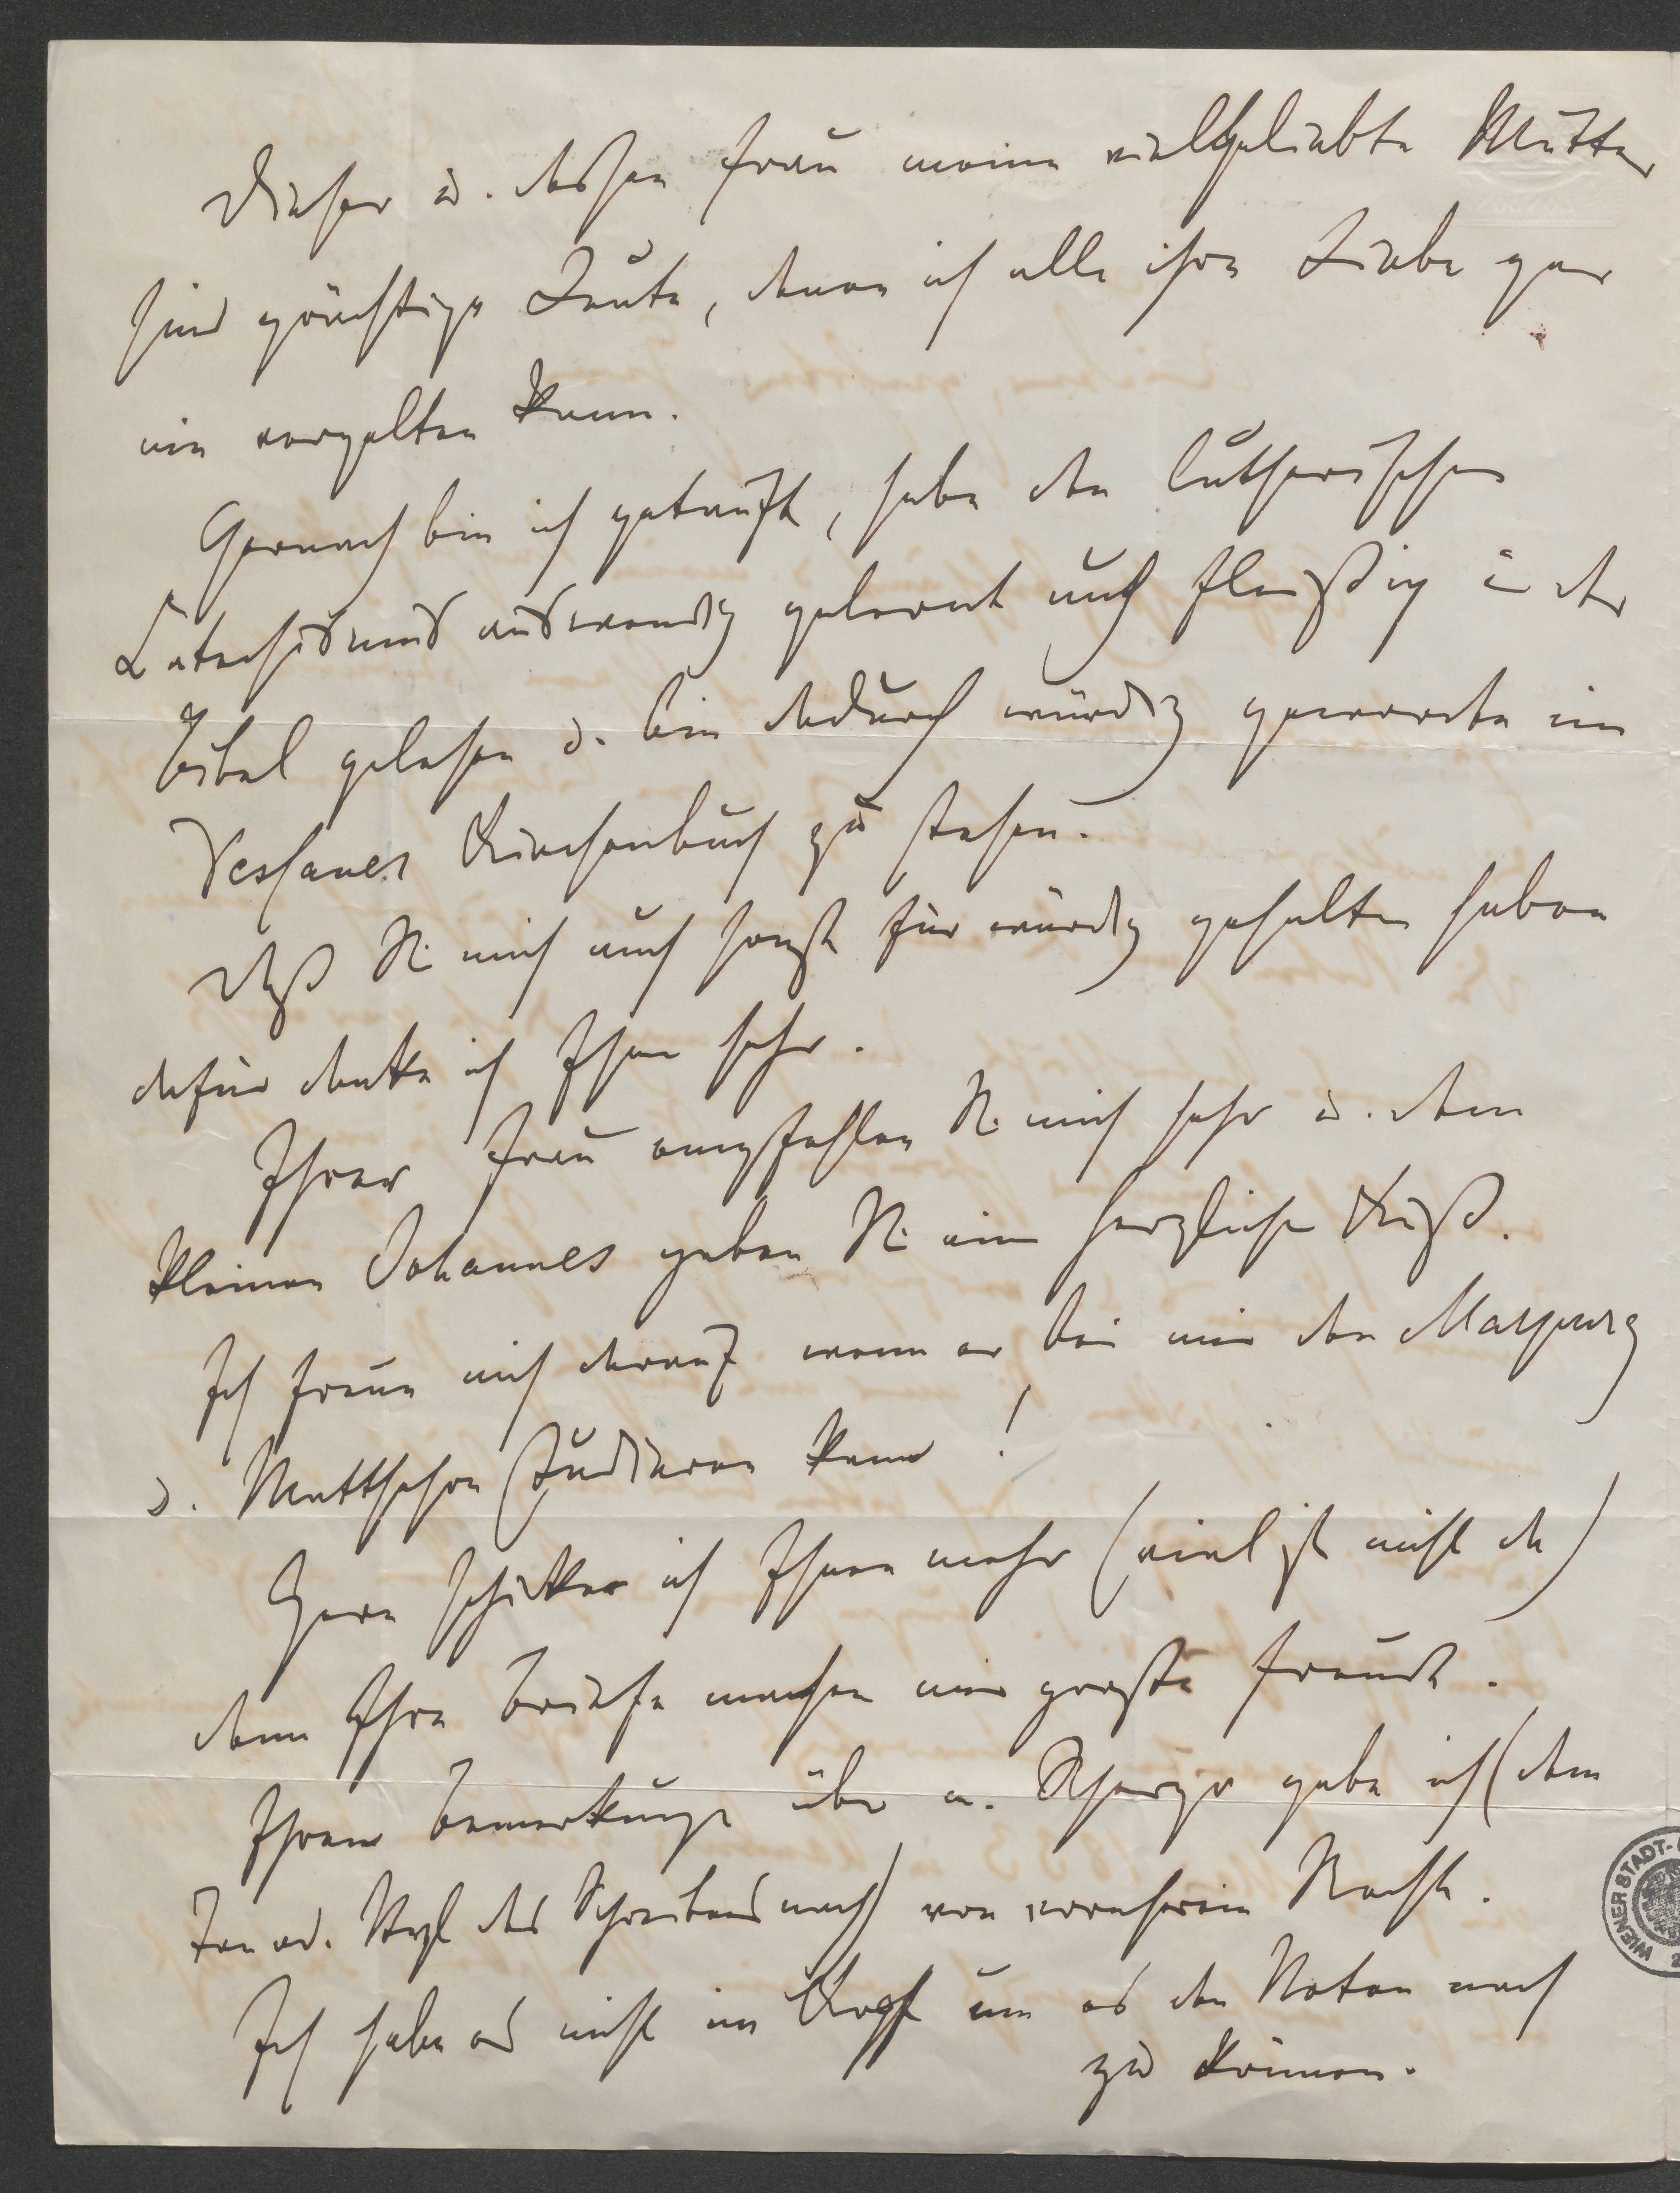 Dieser u. dessen Frau meine vielgeliebte Mutter
sind prächtige Leute, denen ich alle ihre Liebe gar
nie vergelten kann.
Hernach bin ich getauft, habe den lutherischen
Catechismus auswendig gelernt auch fleißig in der
Bibel gelesen u. bin dadurch würdig geworden im
Dessauer Kirchenbuch zu stehen.
Daß Sie mich auch sonst für würdig gehalten haben
dafür danke ich Ihnen sehr.
Ihrer Frau empfehlen Sie mich sehr u. dem
kleinen Johannes geben Sie einen herzlichen Kuß.
Ich freue mich darauf wenn er bei mir den Marpurg
u. Mattheson studieren kann!
Gern schicke ich Ihnen mehr (viel ist nicht da)
denn Ihre Briefe machen mir große Freude.
Ihren Bemerkungen über m. Scherzo gebe ich (dem
Ton od. Styl des Schreibens nach) von vornherein Recht.
Ich habe es nicht im Kopf um es den Noten nach
zu können.
WIENER STADT-